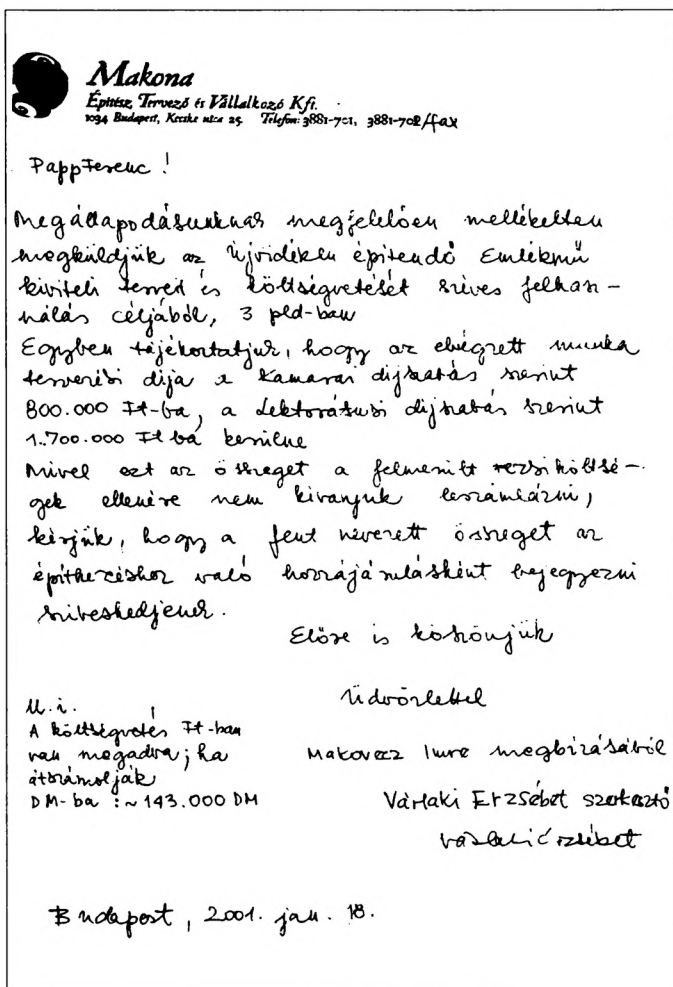 Makona
Építész, Tervező és Vállalkozó Kft.
1094 Budapest, Kecske utca 25 Telefon: 3881-701, 3881-702/fax
Papp Ferenc!
Megállapodásunknak megfelelően mellékelten
megküldjük az Újvidéken építendő Emlékmű
kiviteli terveit és költségvetését szíves felhasz-
nálás céljából, 3 pld-ban
Egyben tájékoztatjuk, hogy az elvégzett munka
tervezési díja a Kamarai díjszabás szerint
800.000 Ft-ba, a Lektorátusi díjszabás szerint
1.700.000 Ft ba kerülne
Mivel ezt az összeget a felmerült rezsiköltsé-
gek ellenére nem kívánjuk leszámlázni,
kérjük, hogy a fent nevezett összeget az
építkezéshez való hozzájárulásként bejegyezni
szíveskedjenek.
Előre is köszönjük
Üdvözlettel
U.i.
A költségvetés Ft-ban
van megadva; ha
átszámolják
DM-ba : ~ 143.000 DM
Makovecz Imre megbízásából
Várlaki Erzsébet szerkesztő
Várlaki Erzsébet
Budapest, 2001. jan. 18.